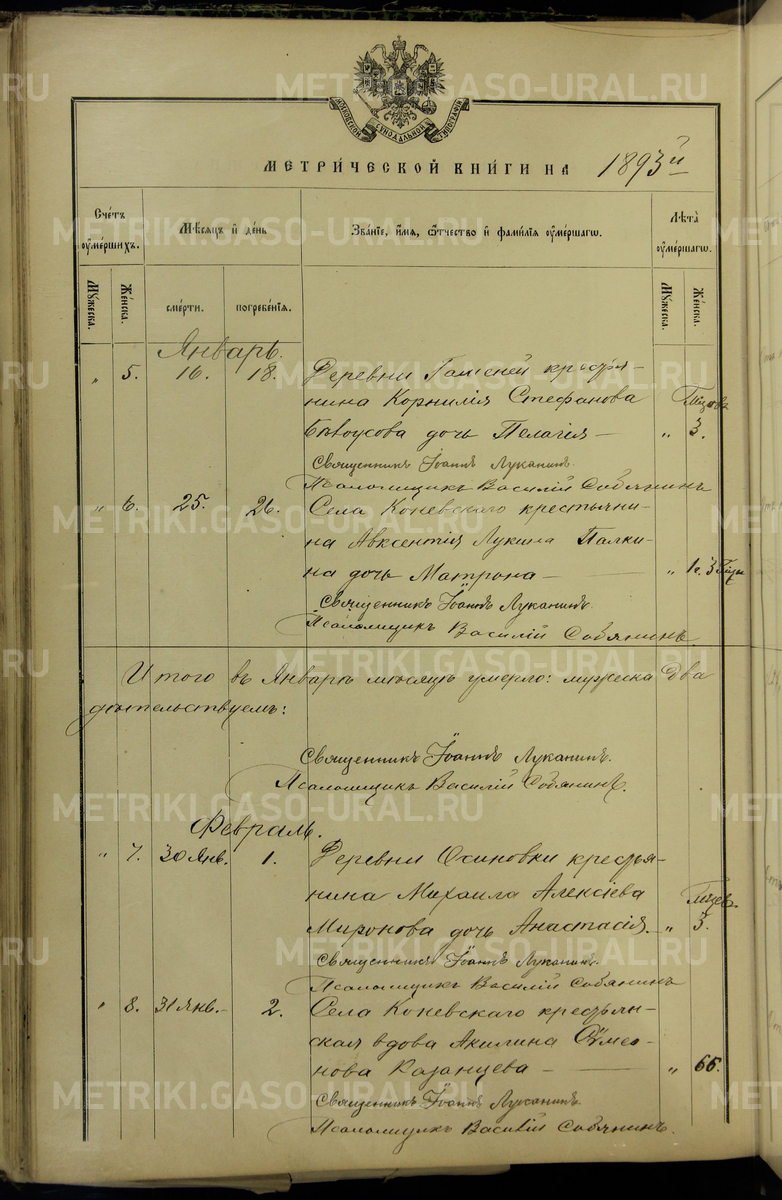 METRIKI.GASO-URAL.RU
МОСКОВСКОЙ СѴНОДАЛЬНОЙ ТИПОГРАФІИ
МЕТРИ́ЧЕСКОЙ КНИ́ГИ НА 1893й
Сче́тъ ᲂу҆ме́ршихъ.
Мѣ́сяцъ и҆ де́нь
Зва́нїе, и҆́мѧ, ѻ҆́тчество и҆ фами́лїѧ ᲂу҆ме́ршагѡ.
Лѣ́та ᲂу҆ме́ршагѡ.
Мꙋ́жеска.
Же́нска.
сме́рти.
погребе́нїѧ.
Мꙋ́жеска.
Же́нска.
Январь.
" 5. 16. 18. Деревни крестья-
нина Корнилія Стефанова
Бѣлоусова дочь Пелагія — " 3.
Священникъ Іоаннъ Луканинъ.
Псаломщикъ Василій Собянинъ
" 6. 25. 26. Села Коневскаго крестьяни-
на Авксентія Лукина Палки-
на дочь Матрона — "
Священникъ Іоаннъ Луканинъ.
Псаломщикъ Василій Собянинъ.
Итого въ Январѣ мѣсяцѣ умерло: мужеска два
дѣтельствуемъ:
Священникъ Іоаннъ Луканинъ.
Псаломщикъ Василій Собянинъ.
Февраль.
" 7. 30 Янв. 1. Деревни Осиновки крестья-
нина Михаила Алексіева
Миронова дочь Анастасія. — " 3.
Священникъ Іоаннъ Луканинъ.
Псаломщикъ Василій Собянинъ
" 8. 31 Янв. 2. Села Коневскаго крестьян-
ская вдова Акилина
нова Казанцева — " 66.
Священникъ Іоаннъ Луканинъ.
Псаломщикъ Василій Собянинъ.